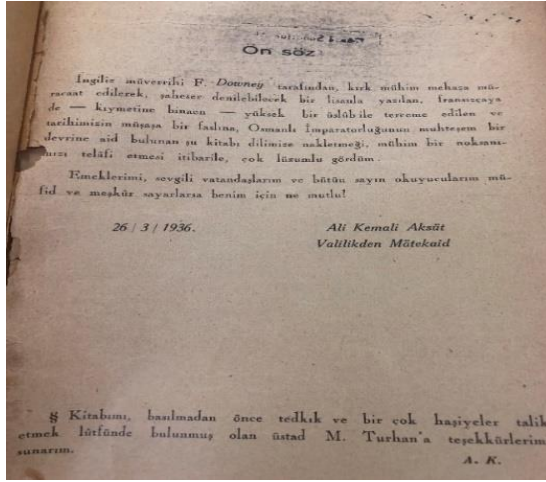 Ön söz
İngiliz müverrihi F. Downey tarafından, kırk mühim mehaza mü-
racaat edilerek, şaheser denilebilecek bir lisanla yazılan, fransızçaya
de — kıymetine binaen — yüksek bir üslûbile terceme edilen ve
tarihimizin müşaşa bir faslına, Osmanlı İmparatorluğunun muhteşem bir
devrine aid bulunan şu kitabı dilimize nakletmeği, mühim bir noksanı-
mızı telâfi etmesi itibarile, çok lüzumlu gördüm.
Emeklerimi, sevgili vatandaşlarım ve bütün sayın okuyucularım mü-
fid ve meşkûr sayarlarsa benim için ne mutlu!
26 / 3 / 1936.
Ali Kemali Aksüt
Valilikden Mütekaid
§ Kitabımı, basılmadan önce tedkik ve bir çok haşiyeler talik
etmek lûtfünde bulunmuş olan üstad M. Turhan'a teşekkürlerim
sunarım.
A. K.